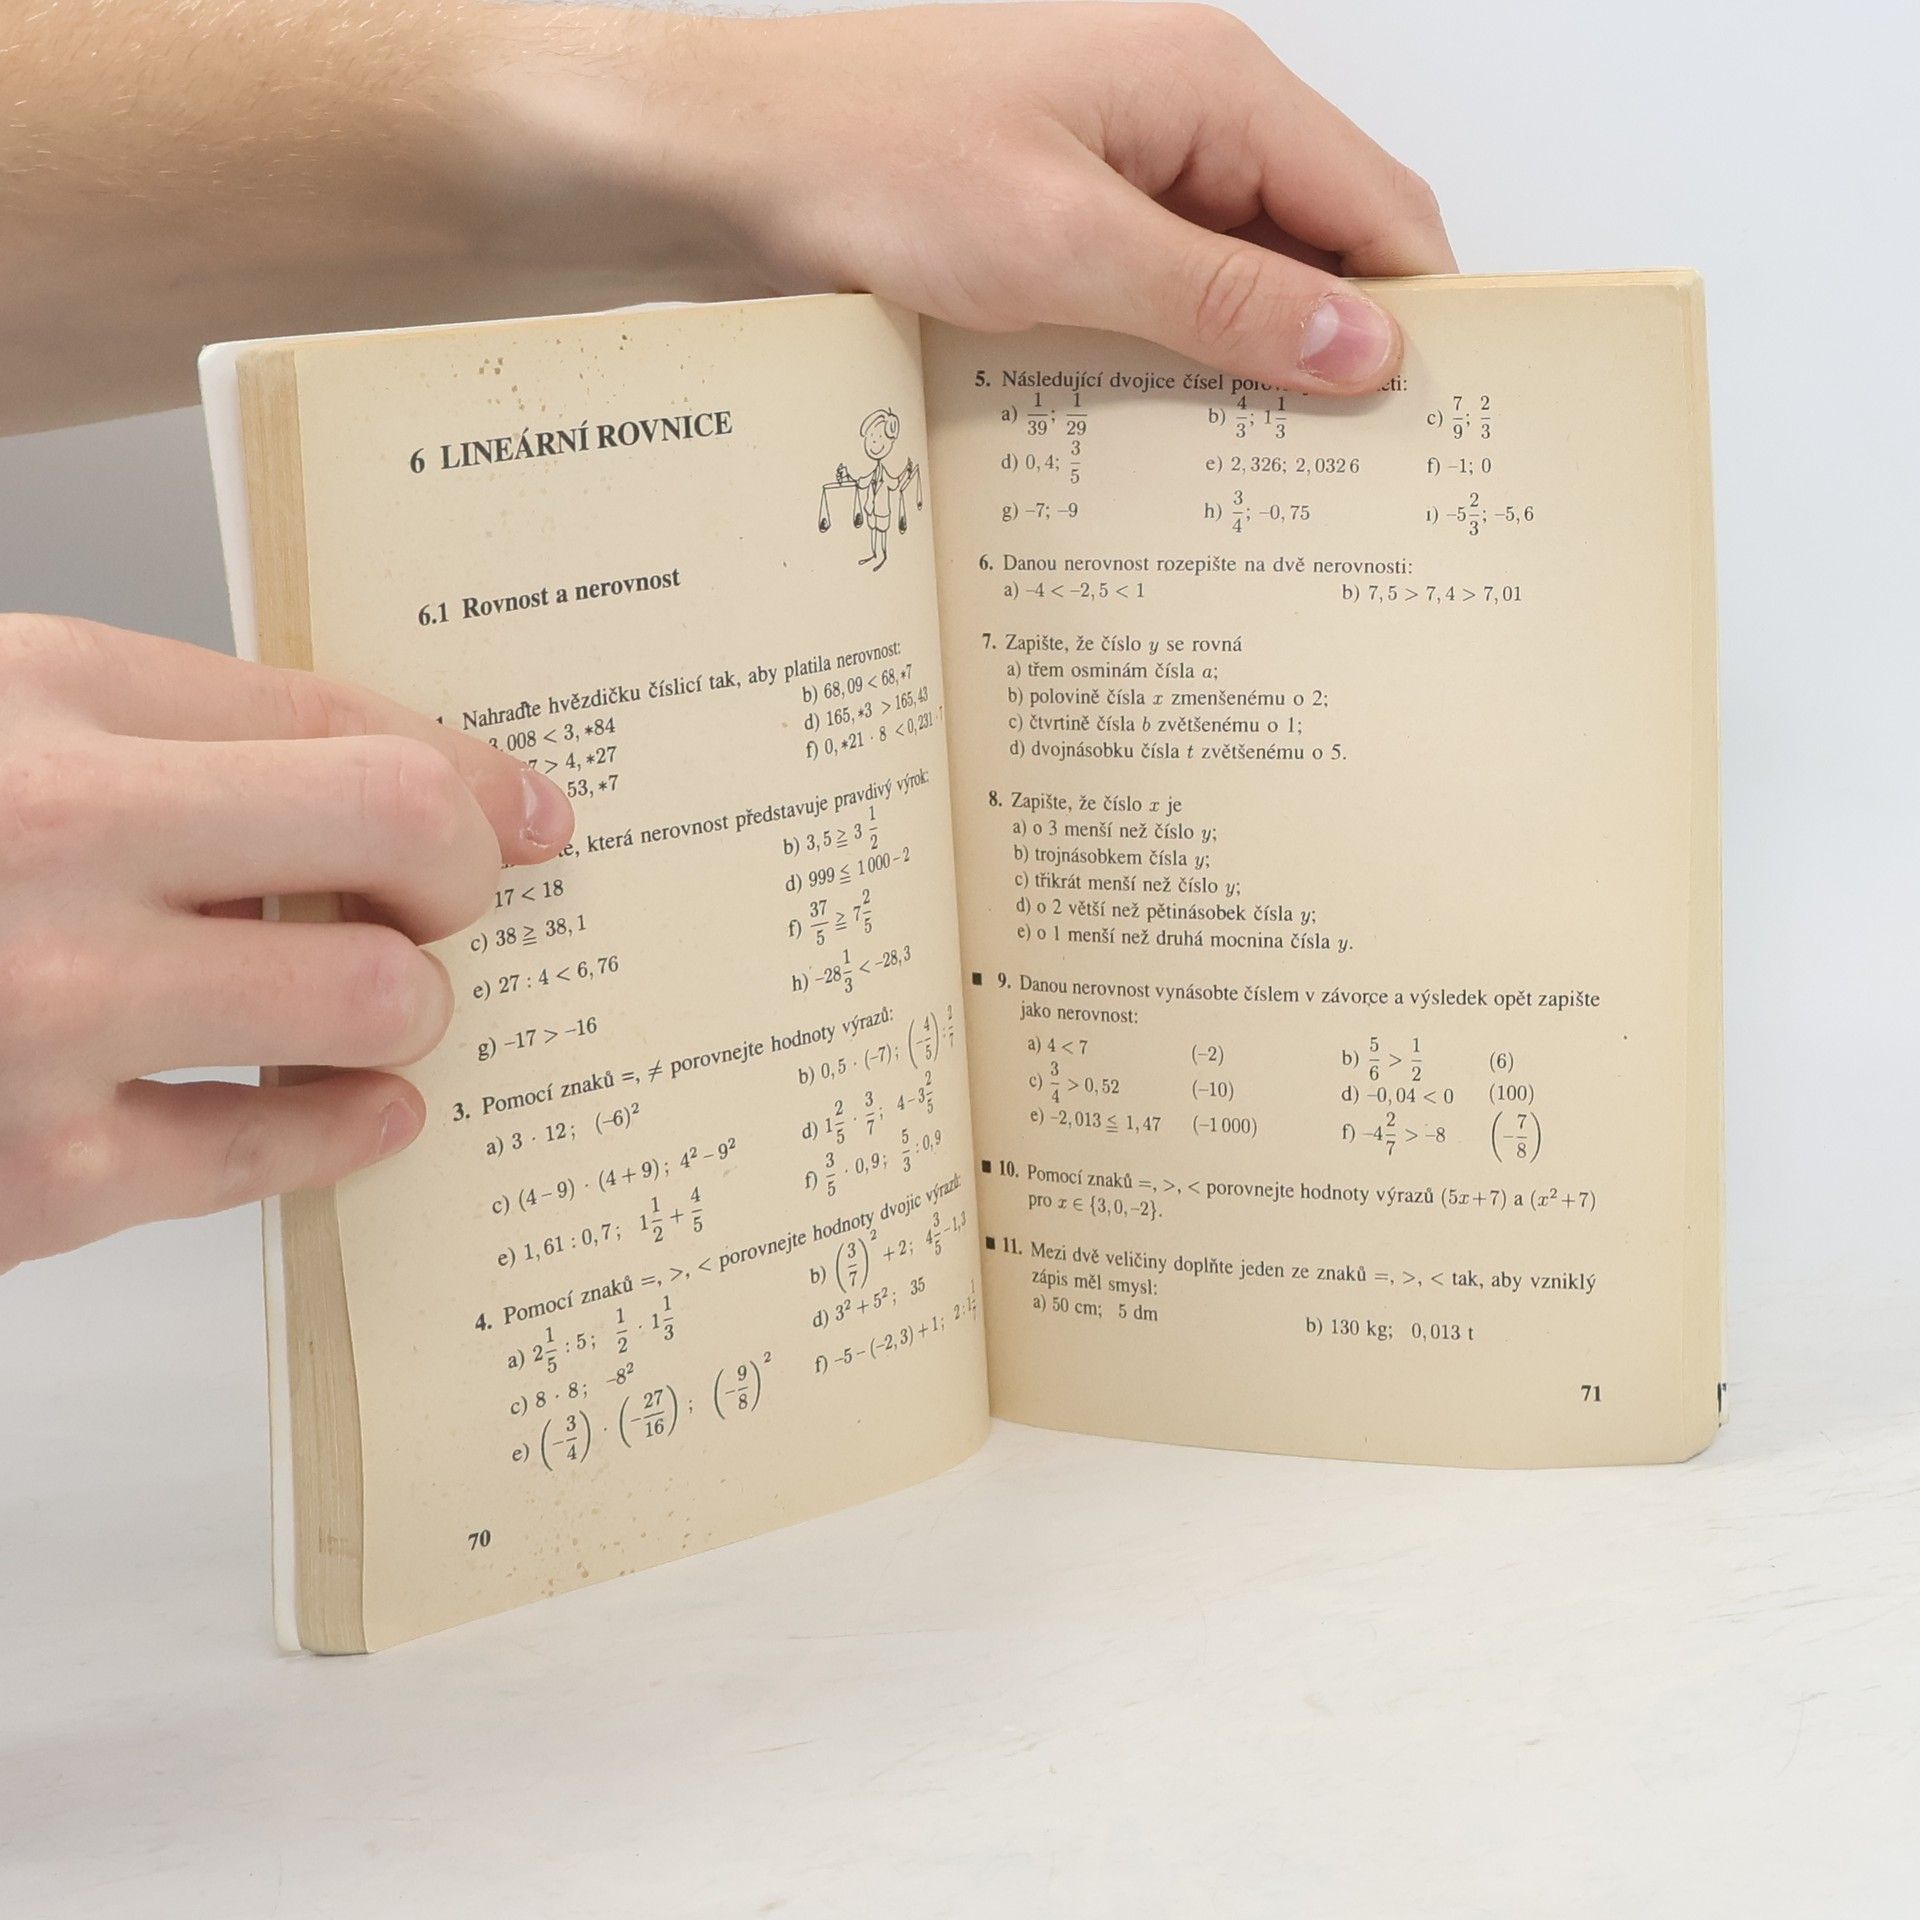 6 LINEÁRNÍ ROVNICE
6.1 Rovnost a nerovnost
Nahraďte hvězdičku číslicí tak, aby platila nerovnost:
3,008 < 3,*84 b) 68,09 < 68,*7
> 4,*27 d) 165,*3 > 165,43
53,*7 f) 0,*21 · 8 < 0,231 ·
která nerovnost představuje pravdivý výrok:
17 < 18 b) 3,5 ≧ 3 1/2
c) 38 ≧ 38,1 d) 999 ≦ 1 000 – 2
e) 27 : 4 < 6,76 f) 37/5 ≧ 7 2/5
g) –17 > –16 h) –28 1/3 < –28,3
3. Pomocí znaků =, ≠ porovnejte hodnoty výrazů:
a) 3 · 12; (–6)² b) 0,5 · (–7); (–4/5) : 2/7
c) (4 – 9) · (4 + 9); 4² – 9² d) 1 2/5 · 3/7; 4 – 3 2/5
e) 1,61 : 0,7; 1 1/2 + 4/5 f) 3/5 · 0,9; 5/3 : 0,9
4. Pomocí znaků =, >, < porovnejte hodnoty dvojic výrazů:
a) 2 1/5 : 5; 1/2 · 1 1/3 b) (3/7)² + 2; 4 3/5 – 1,3
c) 8 · 8; –8² d) 3² + 5²; 35
e) (–3/4) · (–27/16); (–9/8)² f) –5 – (–2,3) + 1; 2 : 1 1/7
70
5. Následující dvojice čísel
a) 1/39; 1/29 b) 4/3; 1 1/3 c) 7/9; 2/3
d) 0,4; 3/5 e) 2,326; 2,032 6 f) –1; 0
g) –7; –9 h) 3/4; –0,75 i) –5 2/3; –5,6
6. Danou nerovnost rozepište na dvě nerovnosti:
a) –4 < –2,5 < 1 b) 7,5 > 7,4 > 7,01
7. Zapište, že číslo y se rovná
a) třem osminám čísla a;
b) polovině čísla x zmenšenému o 2;
c) čtvrtině čísla b zvětšenému o 1;
d) dvojnásobku čísla t zvětšenému o 5.
8. Zapište, že číslo x je
a) o 3 menší než číslo y;
b) trojnásobkem čísla y;
c) třikrát menší než číslo y;
d) o 2 větší než pětinásobek čísla y;
e) o 1 menší než druhá mocnina čísla y.
■ 9. Danou nerovnost vynásobte číslem v závorce a výsledek opět zapište
jako nerovnost:
a) 4 < 7 (–2) b) 5/6 > 1/2 (6)
c) 3/4 > 0,52 (–10) d) –0,04 < 0 (100)
e) –2,013 ≦ 1,47 (–1 000) f) –4 2/7 > –8 (–7/8)
■ 10. Pomocí znaků =, >, < porovnejte hodnoty výrazů (5x + 7) a (x² + 7)
pro x ∈ {3, 0, –2}.
■ 11. Mezi dvě veličiny doplňte jeden ze znaků =, >, < tak, aby vzniklý
zápis měl smysl:
a) 50 cm; 5 dm b) 130 kg; 0,013 t
71